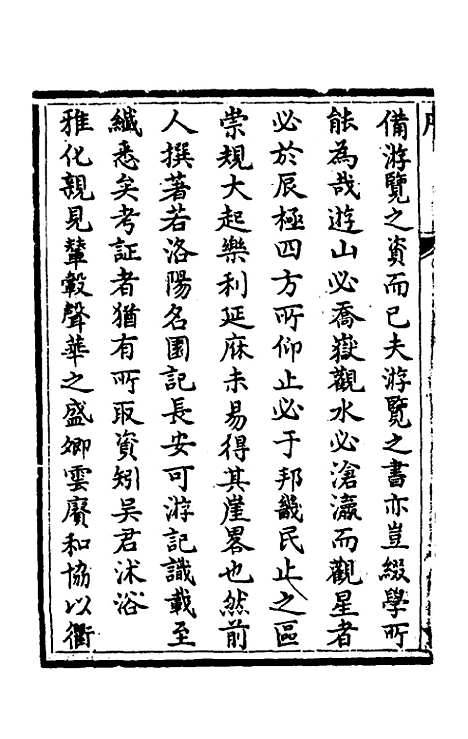 備游覽之資而已夫游覽之書亦豈綴學所
能為哉遊山必喬嶽觀水必滄瀛而觀星者
必於辰極四方所仰止必于邦畿民止之區
崇規大起樂利延庥未易得其崖畧也然前
人撰著若洛陽名園記長安可游記識載至
纖悉矣考証者猶有所取資矧吳君沐浴
雅化親見輦轂聲華之盛卿雲賡和協以衢